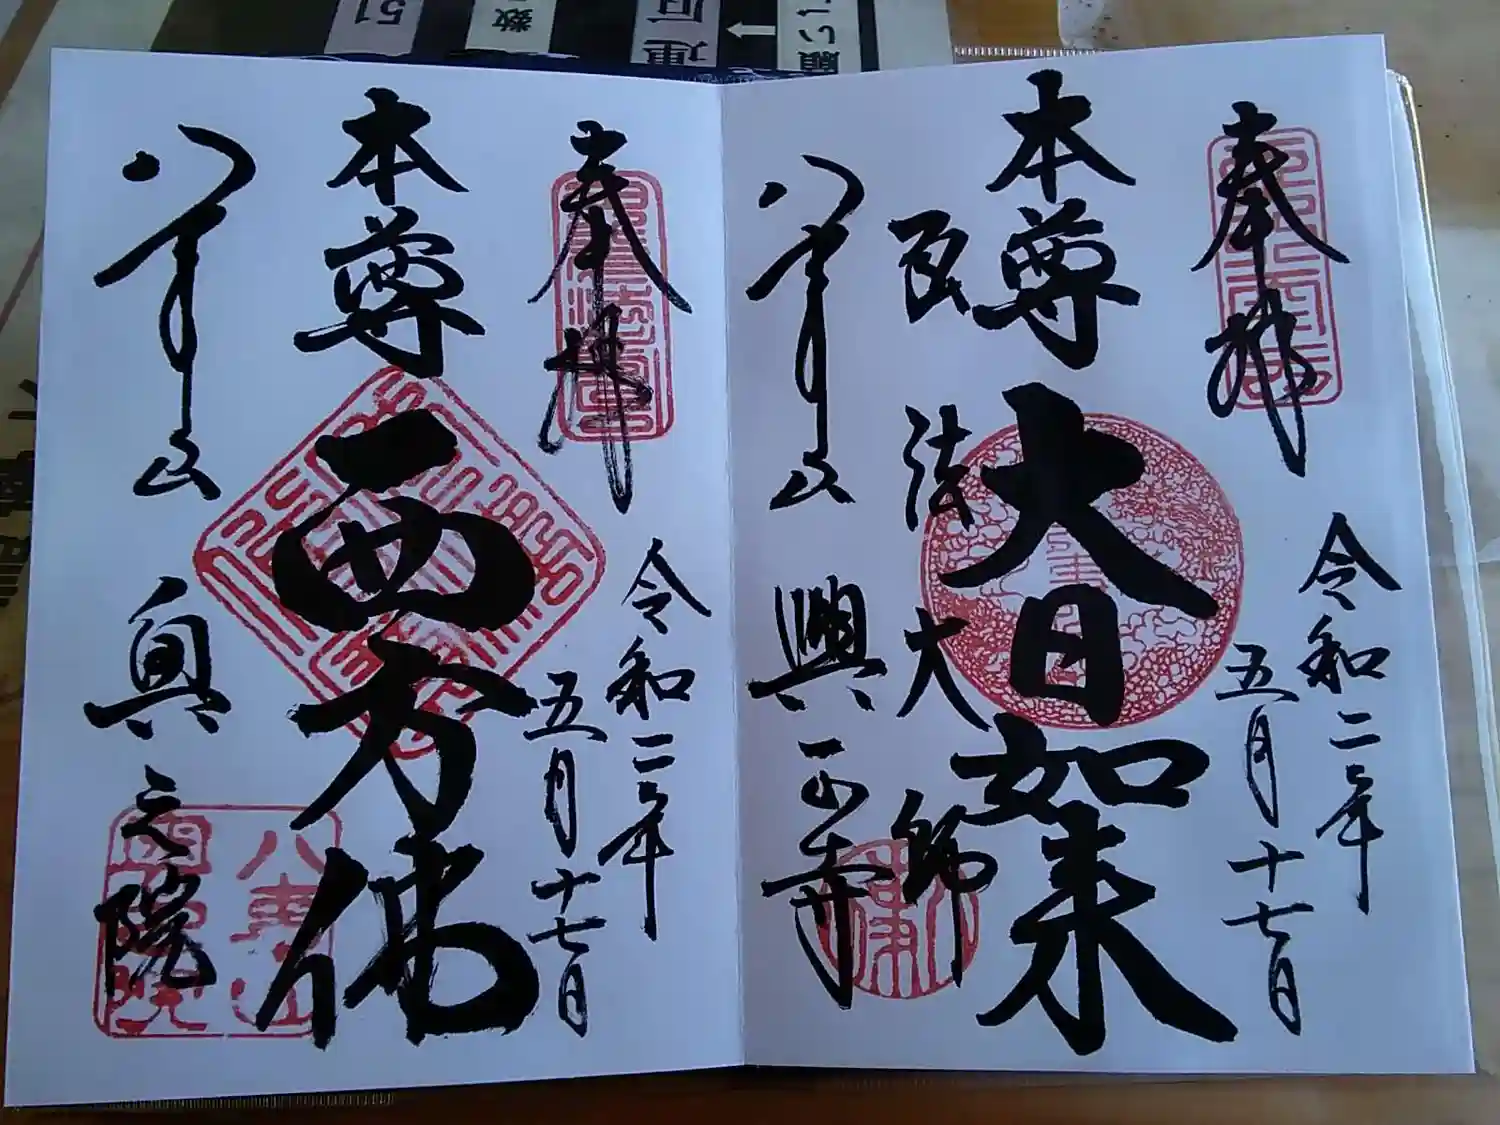 奉拝
令和二年
五月十七日
本尊 大日如来
弘法大師
八事山 興正寺
奉拝
令和二年
五月十七日
本尊 西方佛
八事山 奥之院
八事山
奥之院
数
51